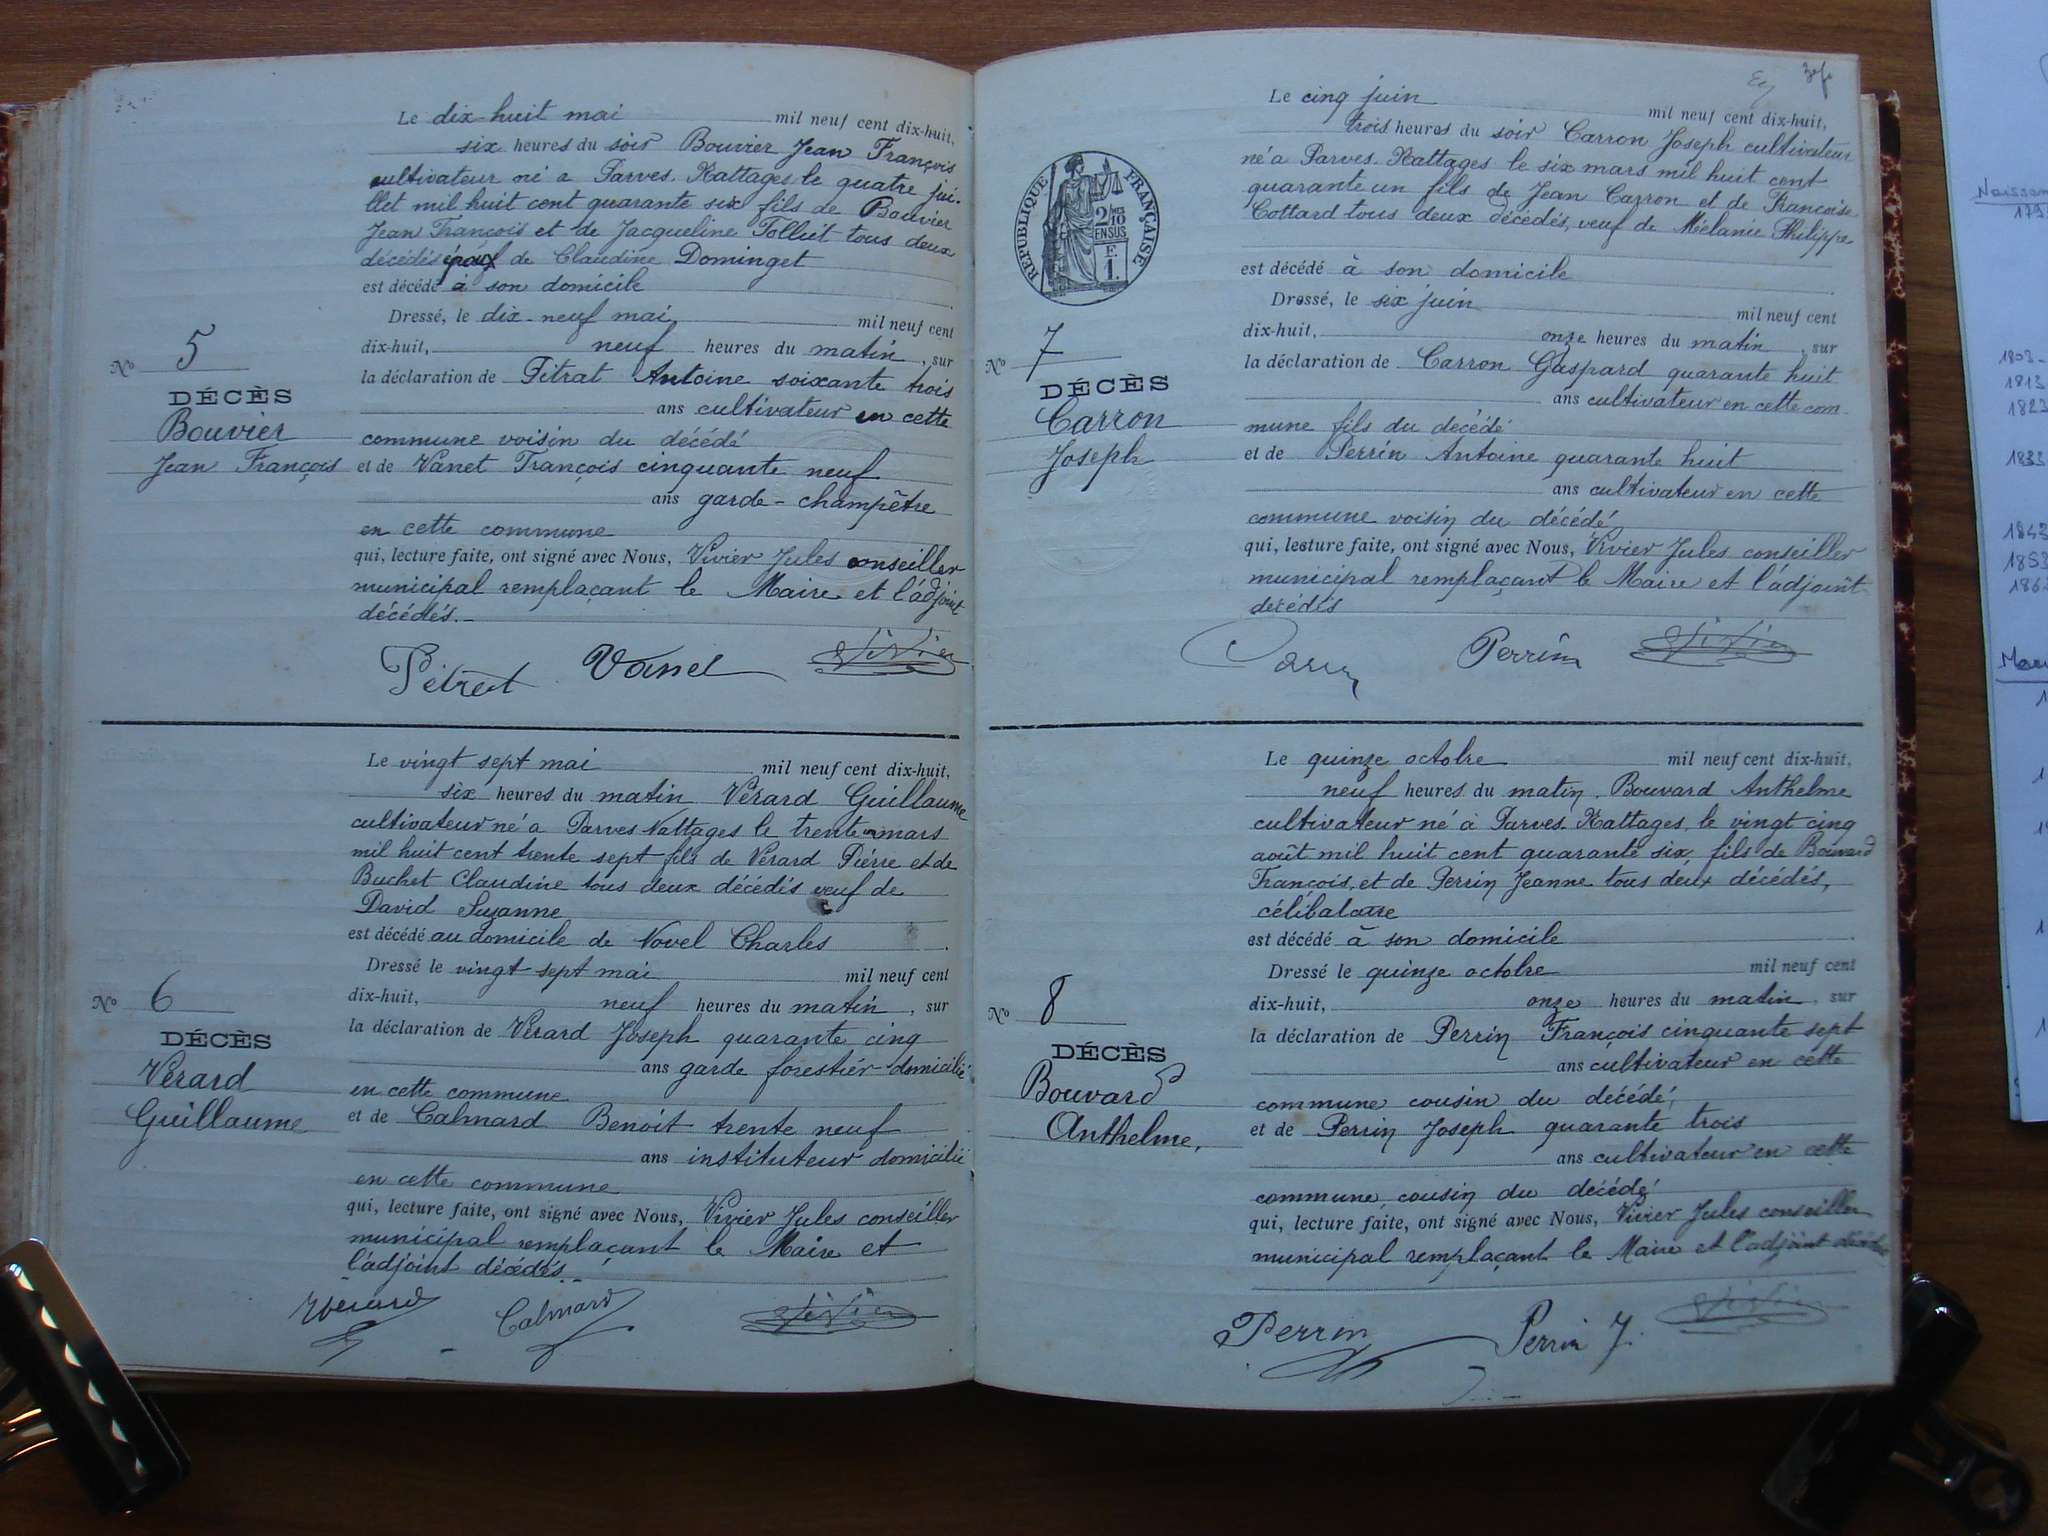 Le dix-huit mai mil neuf cent dix-huit,
six heures du soir Bouvier Jean François
cultivateur né a Parves. Nattages le quatre jui-
llet mil huit cent quarante six fils de Bouvier
Jean François et de Jacqueline Tolliet tous deux
décédés époux de Claudine Dominget
est décédé à son domicile
Dressé, le dix-neuf mai mil neuf cent
dix-huit, neuf heures du matin, sur
la déclaration de Pétrat Antoine soixante trois
ans cultivateur en cette
commune voisin du décédé
et de Vanet François cinquante neuf
ans garde-champêtre
en cette commune
qui, lecture faite, ont signé avec Nous, Vivier Jules conseiller
municipal remplaçant le Maire et l'adjoint
décédés.-
Pétrat Vanel Vivier
No 5
DÉCÈS
Bouvier
Jean François
Le vingt sept mai mil neuf cent dix-huit,
six heures du matin Vérard Guillaume
cultivateur né a Parves Nattages le trente un mars
mil huit cent trente sept fils de Vérard Pierre et de
Buchet Claudine tous deux décédés veuf de
David Suzanne
est décédé au domicile de Novel Charles
Dressé le vingt-sept mai mil neuf cent
dix-huit, neuf heures du matin, sur
la déclaration de Vérard Joseph quarante cinq
ans garde forestier domicilié
en cette commune
et de Calmard Benoit trente neuf
ans instituteur domicilié
en cette commune
qui, lecture faite, ont signé avec Nous, Vivier Jules conseiller
municipal remplaçant le Maire et
l'adjoint décédés.
Vérard Calmard Vivier
No 6
DÉCÈS
Vérard
Guillaume
Le cinq juin mil neuf cent dix-huit,
trois heures du soir Carron Joseph cultivateur
né a Parves. Nattages le six mars mil huit cent
quarante un fils de Jean Carron et de Françoise
Cottard tous deux décédés, veuf de Mélanie Philippe
est décédé à son domicile
Dressé, le six juin mil neuf cent
dix-huit, onze heures du matin, sur
la déclaration de Carron Gaspard quarante huit
ans cultivateur en cette com-
mune fils du décédé
et de Perrin Antoine quarante huit
ans cultivateur en cette
commune voisin du décédé
qui, lecture faite, ont signé avec Nous, Vivier Jules conseiller
municipal remplaçant le Maire et l'adjoint
décédés
Perrin Vivier
RÉPUBLIQUE FRANÇAISE
2/10 MES
EN SUS
F.
1.
No 7
DÉCÈS
Carron
Joseph
Le quinze octobre mil neuf cent dix-huit,
neuf heures du matin, Bouvard Anthelme
cultivateur né à Parves. Nattages, le vingt cinq
août mil huit cent quarante six, fils de Bouvard
François, et de Perrin Jeanne tous deux décédés,
célibataire
est décédé à son domicile
Dressé le quinze octobre mil neuf cent
dix-huit, onze heures du matin, sur
la déclaration de Perrin François cinquante sept
ans cultivateur en cette
commune cousin du décédé,
et de Perrin Joseph quarante trois
ans cultivateur en cette
commune, cousin du décédé
qui, lecture faite, ont signé avec Nous, Vivier Jules conseiller
municipal remplaçant le Maire et l'adjoint décédés
Perrin Perrin J. Vivier
No 8
DÉCÈS
Bouvard
Anthelme,
1803-
1813
1823
1833
1843
1853